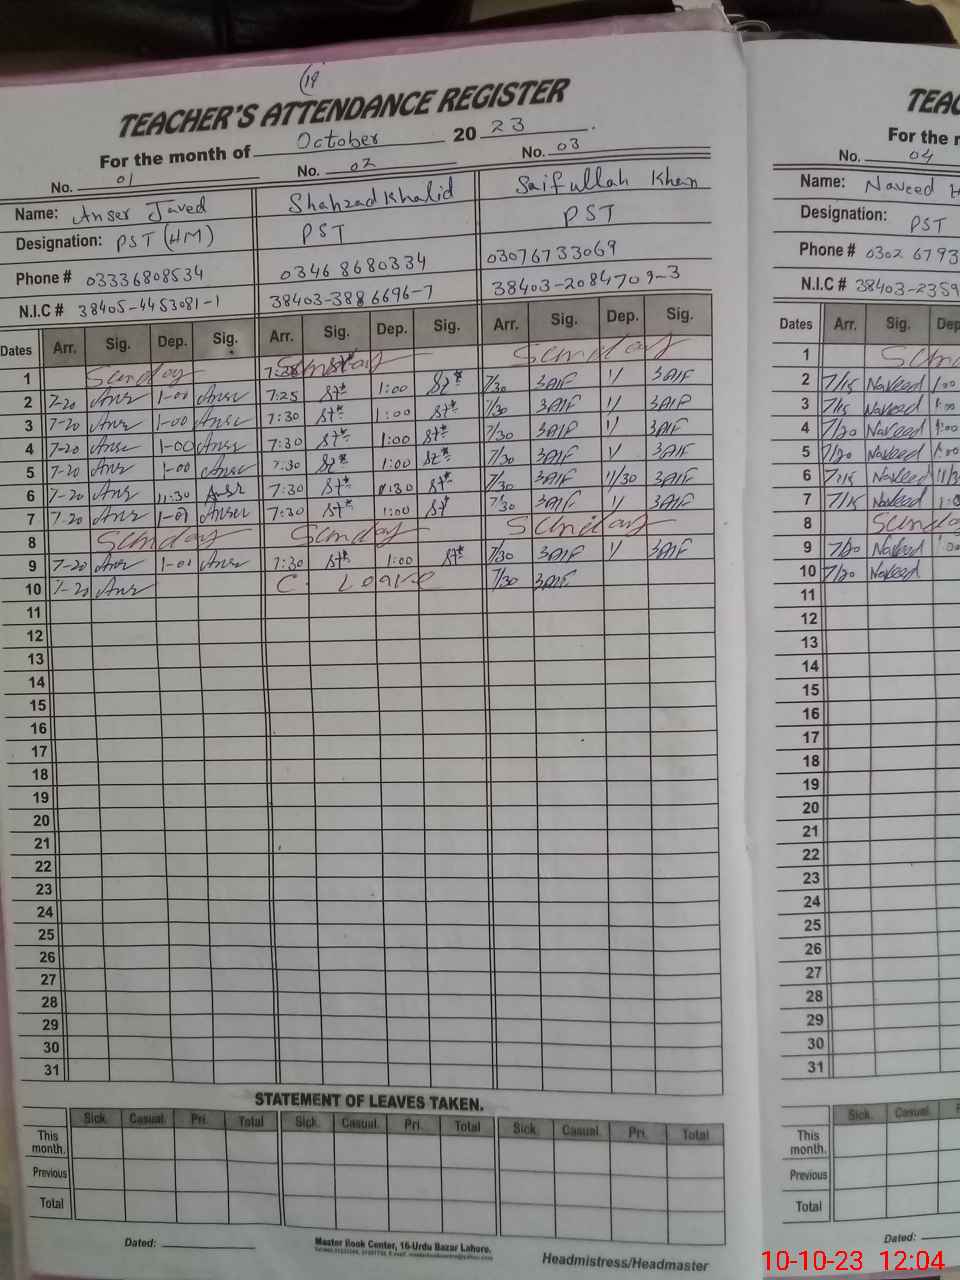 (19
TEACHER'S ATTENDANCE REGISTER
For the month of October 2023.
No. 01 No. 02 No. 03
Name: Anser Javed Shahzad Khalid Saifullah Khan
Designation: PST (HM) PST PST
Phone # 03336808534 03468680334 03076733069
N.I.C # 38405-4453081-1 38403-3886696-7 38403-2084709-3
Dates Arr. Sig. Dep. Sig. Arr. Sig. Dep. Sig. Arr. Sig. Dep. Sig.
1 Sunday Sunday Sunday
2 7-20 1-00 7:25 1:00 7/30 SAIF 1/ SAIF
3 7-20 1-00 7:30 1:00 7/30 SAIF 1/ SAIF
4 7-20 1-00 7:30 1:00 7/30 SAIF 1/ SAIF
5 7-20 1-00 7:30 1:00 7/30 SAIF 1/ SAIF
6 7-20 11:30 7:30 7/30 SAIF 11/30 SAIF
7 7-20 7:30 1:00 7/30 SAIF 1/ SAIF
8 Sunday Sunday Sunday
9 7-20 1-00 7:30 1:00 7/30 SAIF 1/ SAIF
10 7-20 C. Leave 7/30 SAIF
11
12
13
14
15
16
17
18
19
20
21
22
23
24
25
26
27
28
29
30
31
STATEMENT OF LEAVES TAKEN.
Sick. Casual. Pri. Total Sick. Casual. Pri. Total Sick. Casual. Pri. Total
This month.
Previous
Total
Dated:
Master Book Center, 16-Urdu Bazar Lahore.
Headmistress/Headmaster
TEAC
For the
No. 04
Name: Naveed
Designation: PST
Phone # 0302 6793
N.I.C # 38403-2359
Dates Arr. Sig. Dep
1
2 7/15 Naveed 1:00
3 7/15 Naveed 1:00
4 7/20 Naveed 1:00
5 7/20 Naveed 1:00
6 7/15 Naveed
7 7/15 Naveed
8 Sunday
9 7/20 Naveed 1:00
10 7/20 Naveed
11
12
13
14
15
16
17
18
19
20
21
22
23
24
25
26
27
28
29
30
31
Sick. Casual.
This month.
Previous
Total
Dated:
10-10-23 12:04